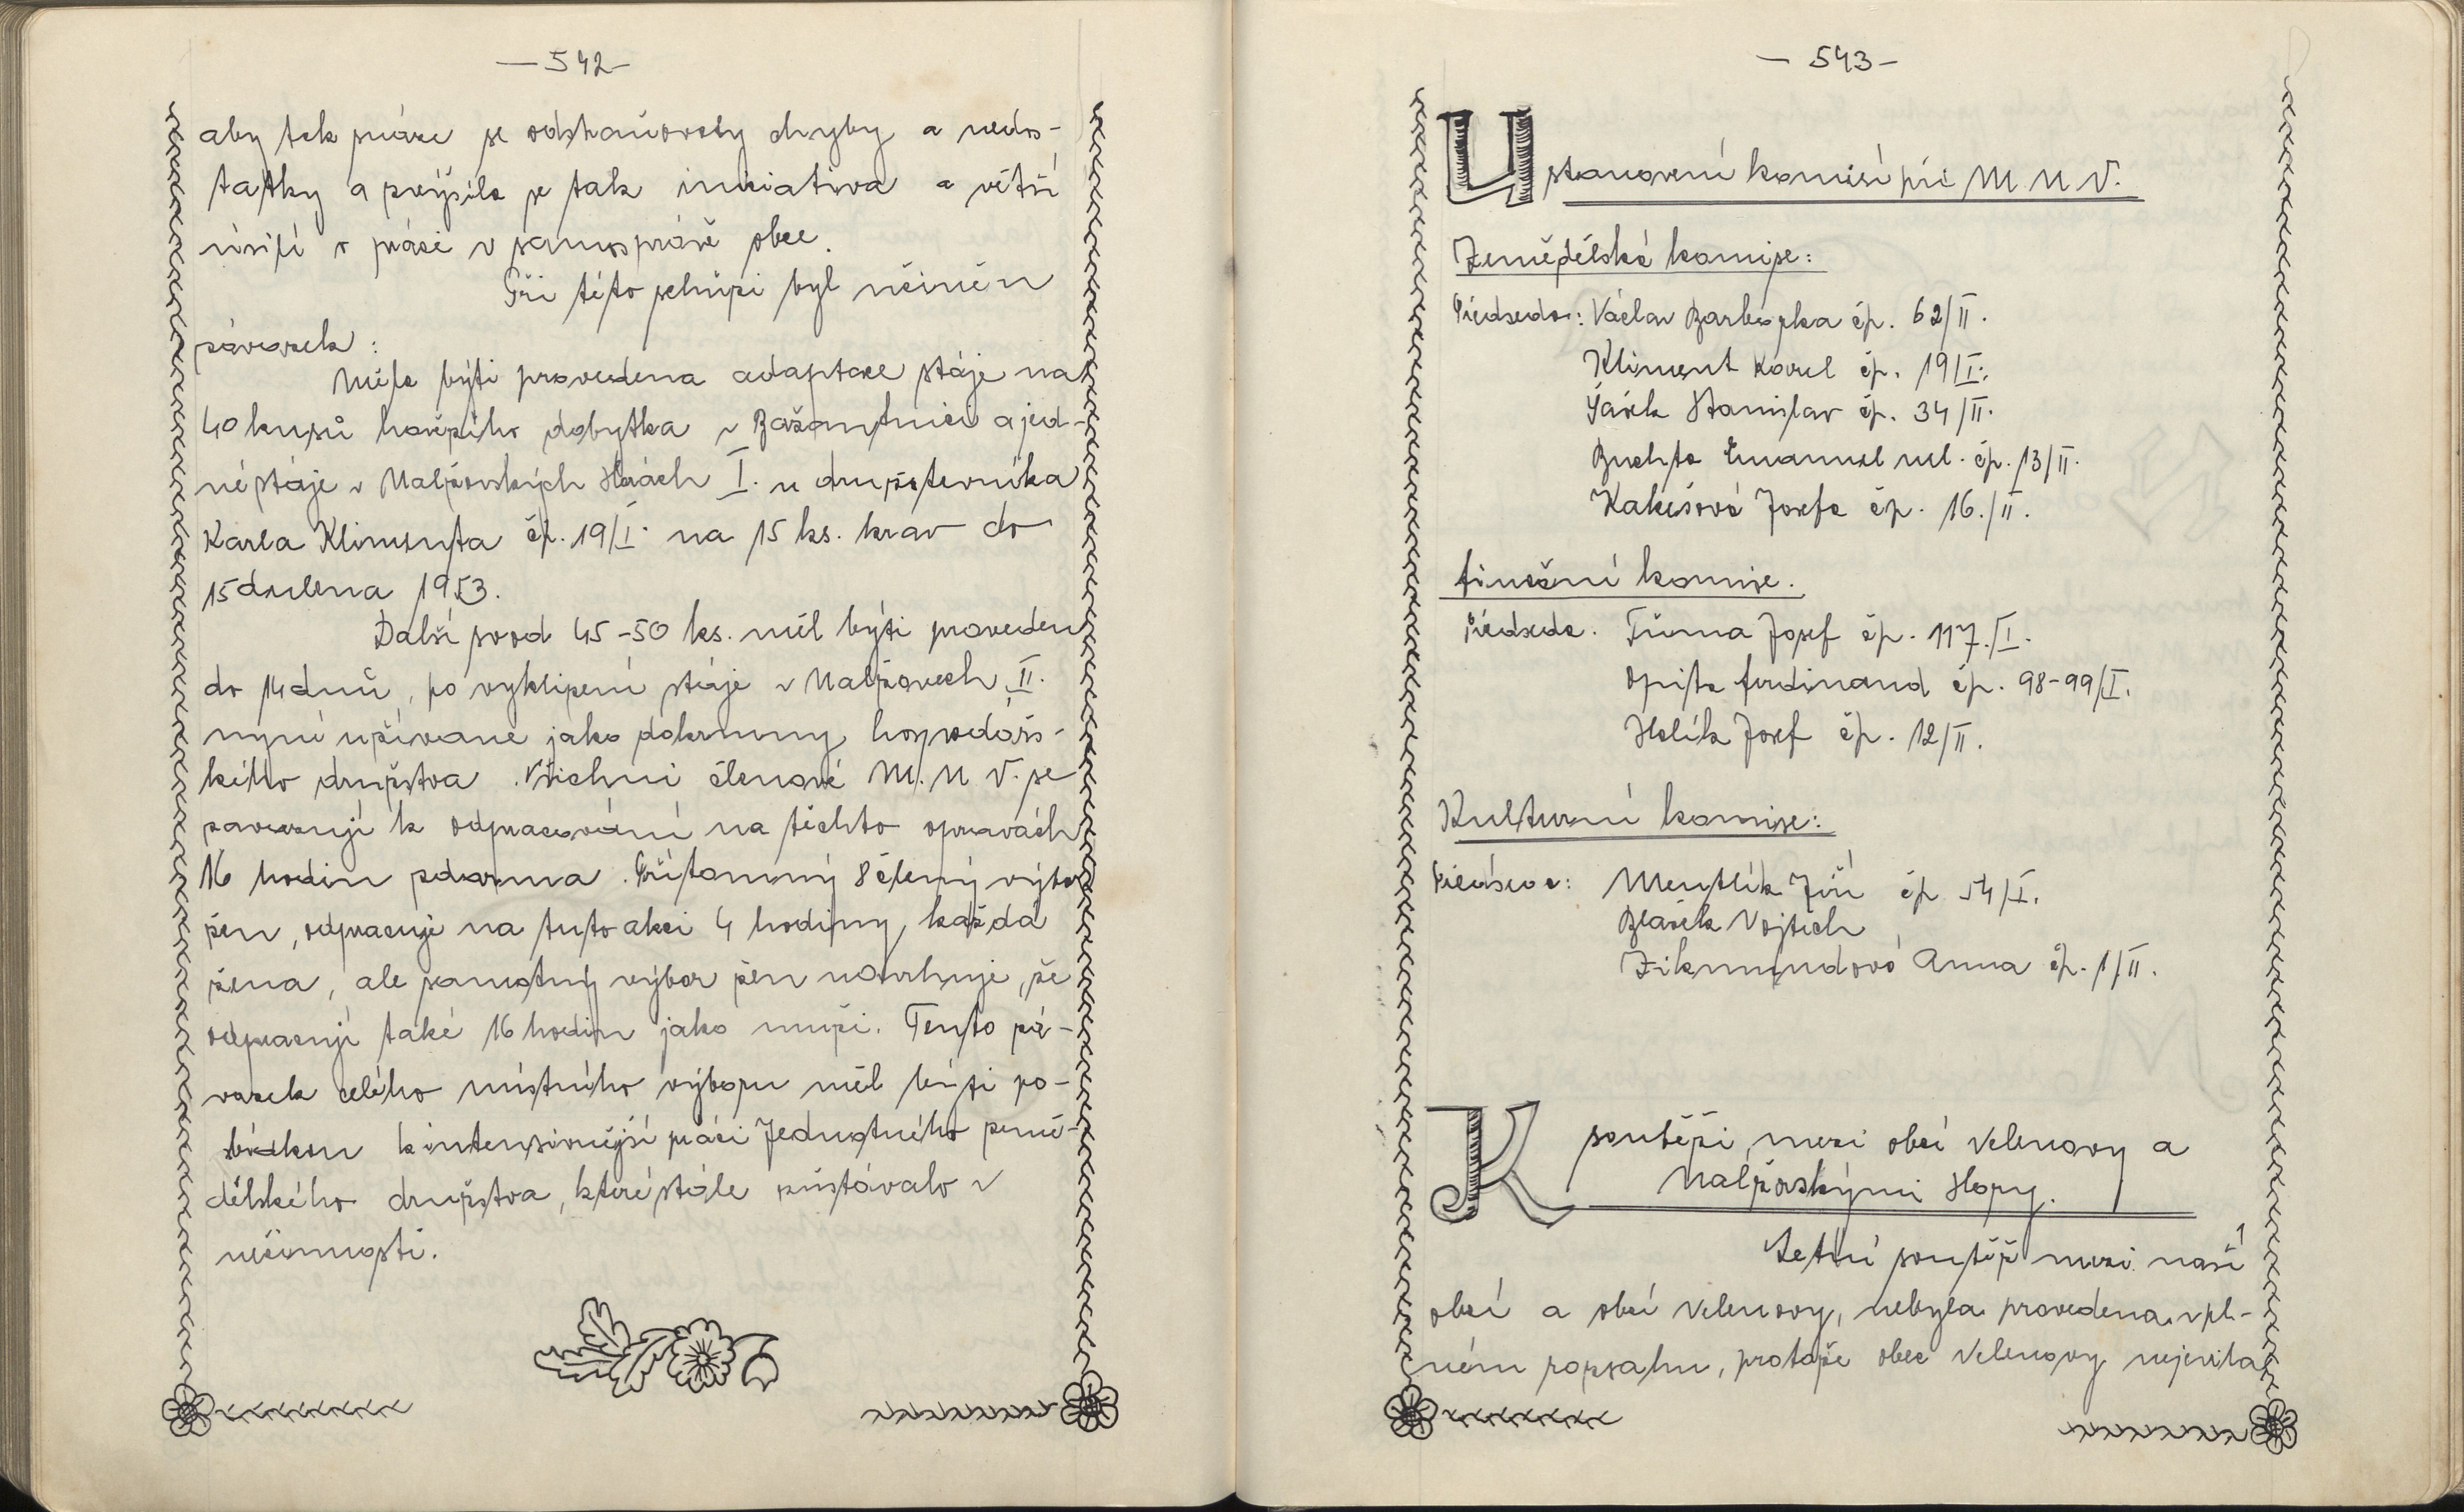 — 542 —
aby tak práce se odstraňovaly chyby a nedos-
tatky a zvýšila se tak iniciativa a větší
úsilí v práci v samosprávě obce.
Při této schůzi byl učiněn
závazek:
Měla býti provedena adaptace stáje na
40 kusů hovězího dobytka v Bažantnici a jed-
né stáje v Malžovských Horách I. u družstevníka
Karla Klimenta čp. 19/I. na 15 ks. krav do
15 dubna 1953.
Další svod 45-50 ks. měl býti proveden
do 14 dnů, po vyklizení stáje v Malžovech II.
nyní užívané jako dokrmny hospodářs-
kého družstva. Všichni členové M. N V. se
zavazují k odpracování na těchto opravách
16 hodin zdarma. Přítomný 8 členný výbor
žen, odpracuje na tuto akci 4 hodiny, každá
žena, ale samotný výbor žen navrhuje, že
odpracují také 16 hodin jako muži. Tento zá-
vazek celého místního výboru měl býti po-
bídkou k intensivnější práci Jednotného země-
dělského družstva, které stále zůstávalo v
nečinnosti.
— 543 —
Ustanovení komisí při M. N V.
Zemědělská komise:
Předseda: Václav Barborka čp. 62/II.
Kliment Karel čp. 19/I.
Šásek Stanislav čp. 34/II.
Buchta Emanuel ml. čp. 13/II.
Kakešová Josefa čp. 16./II.
finanční komise.
Předseda. Tůma Josef čp. 117./I.
Opita ferdinand čp. 98-99/I.
Halík Josef čp. 12/II.
Kulturní komise:
Předseda: Mentlík Jiří čp 54/I.
Blasek Vojtěch
Zikmundová Anna čp. 1/II.
K soutěži, mezi obcí Velenovy a
Malžovskými Hory.
Letní soutěž mezi naší
obcí a obcí Velenovy, nebyla provedena v pl-
ném rozsahu, protože obec Velenovy nejevila